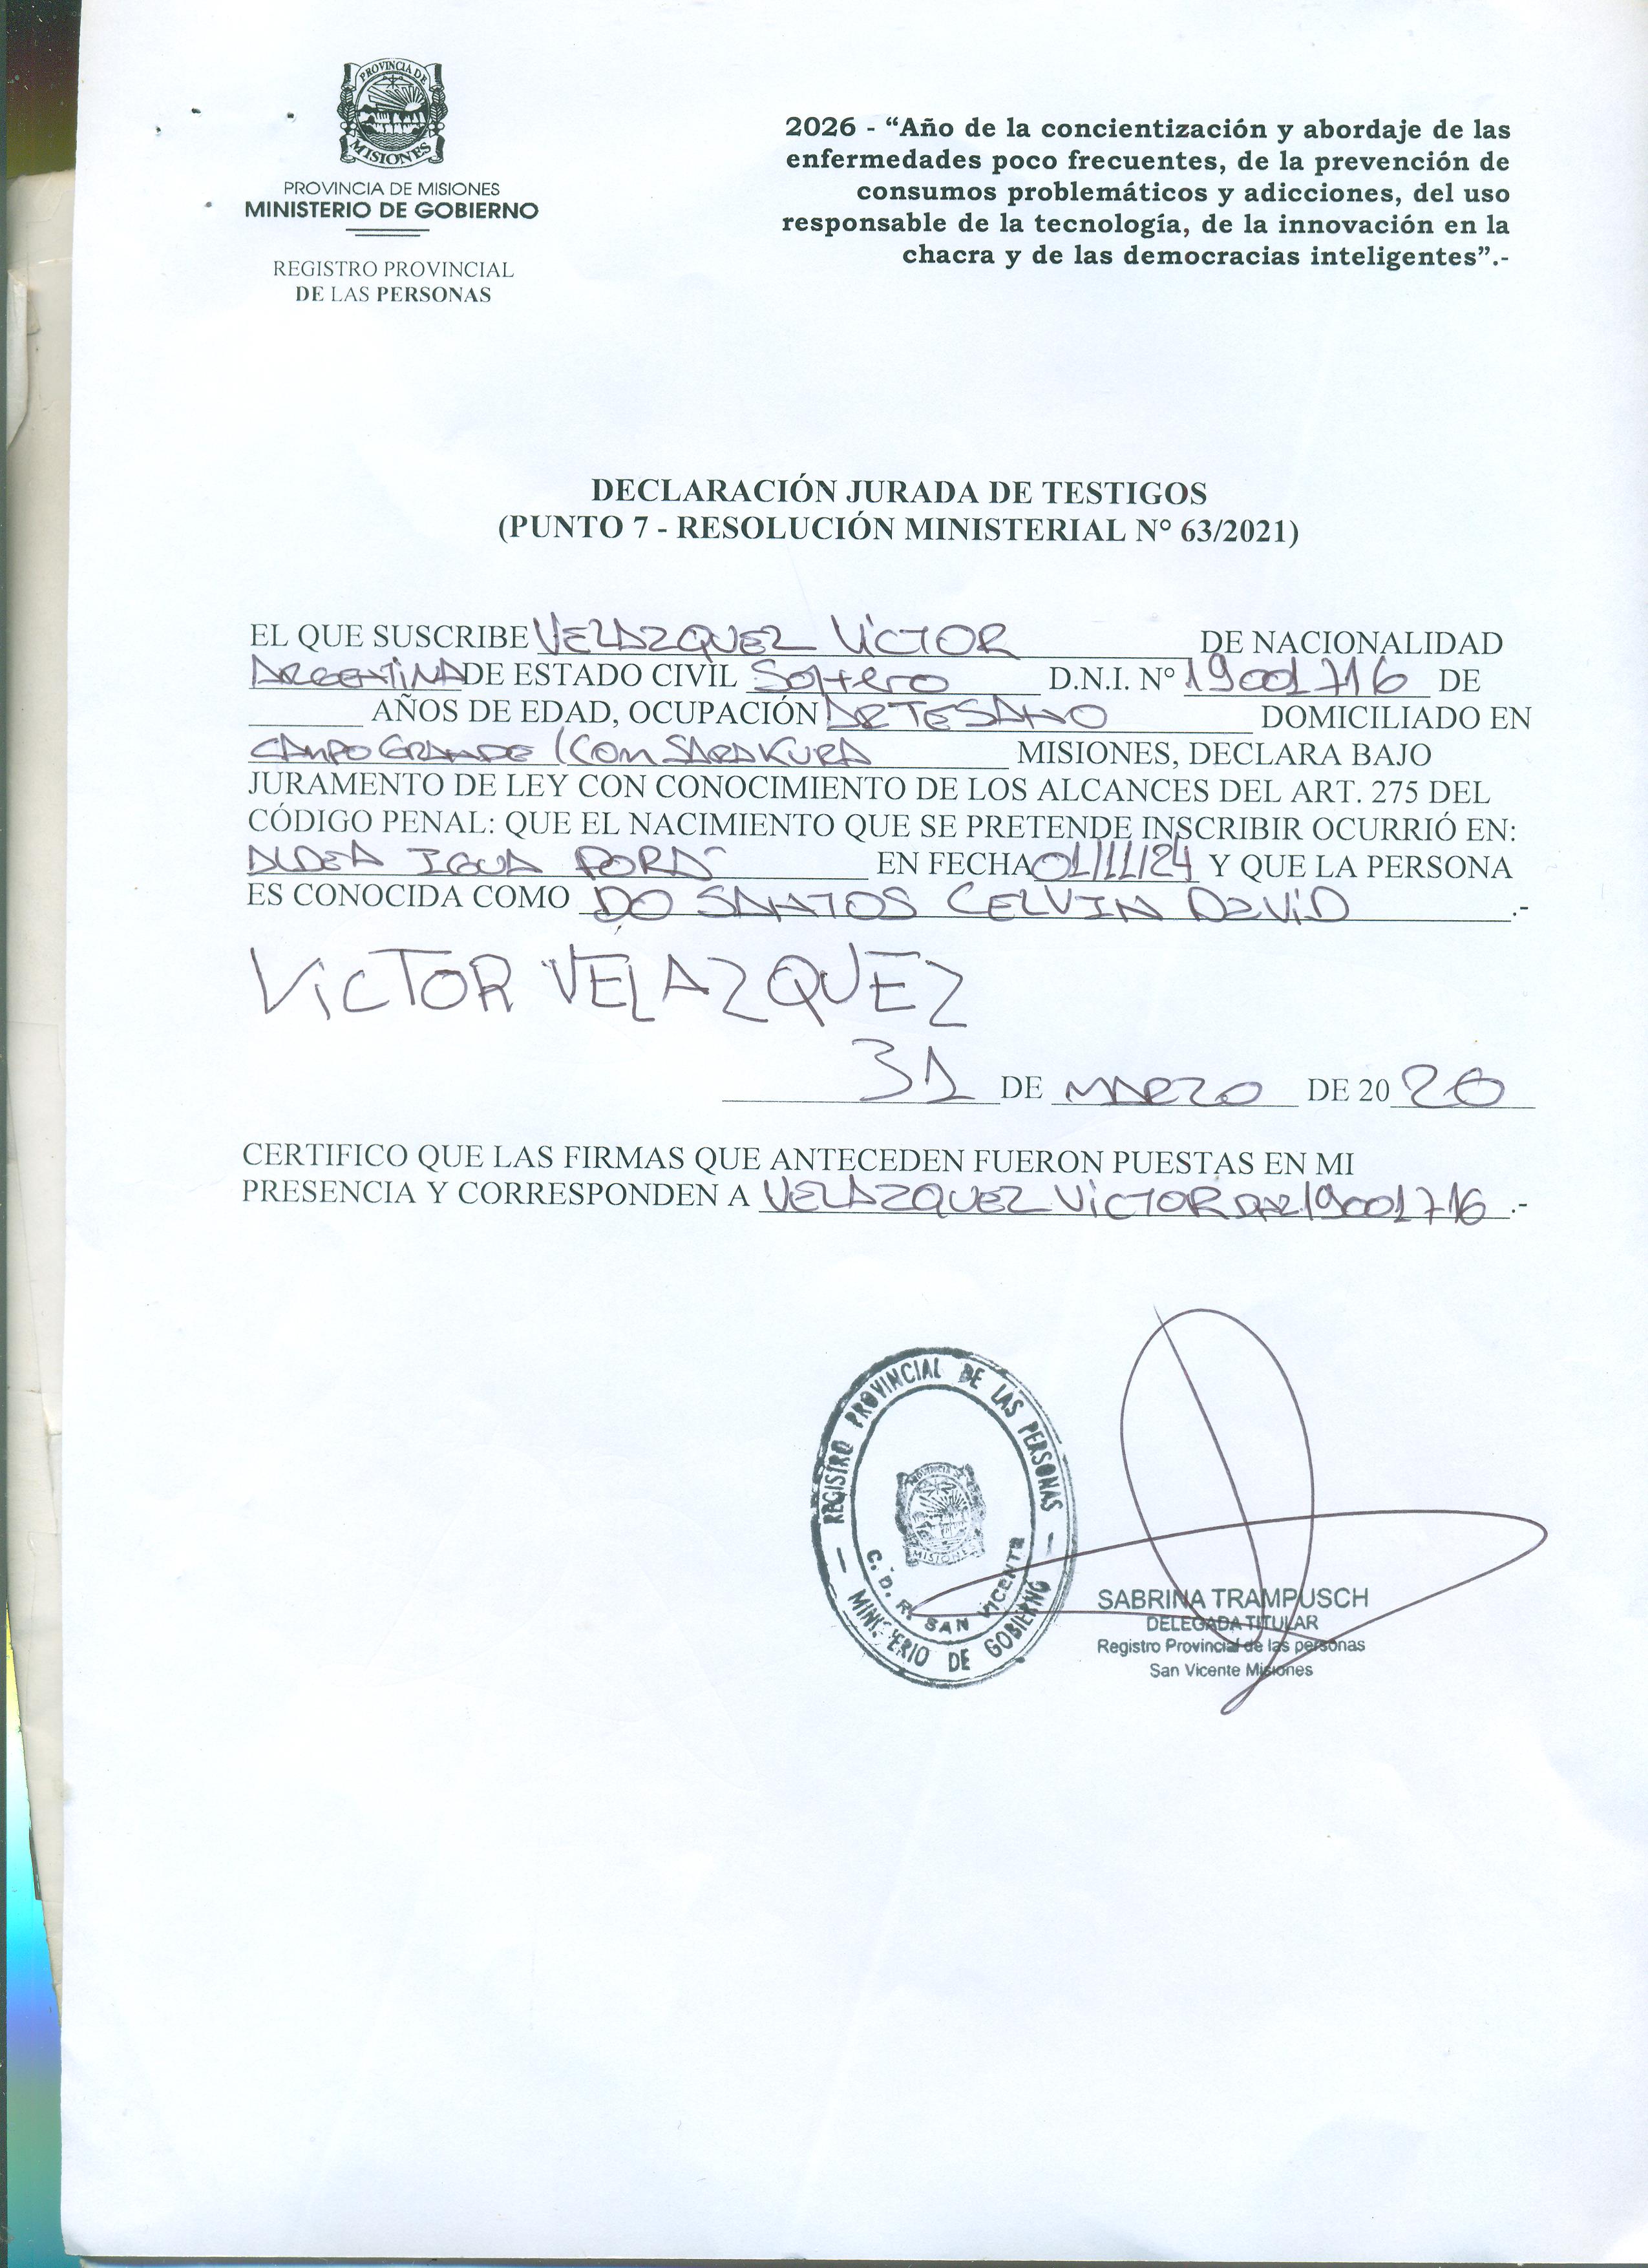 PROVINCIA DE
MISIONES
PROVINCIA DE MISIONES
MINISTERIO DE GOBIERNO
REGISTRO PROVINCIAL
DE LAS PERSONAS
2026 - “Año de la concientización y abordaje de las
enfermedades poco frecuentes, de la prevención de
consumos problemáticos y adicciones, del uso
responsable de la tecnología, de la innovación en la
chacra y de las democracias inteligentes”.-
DECLARACIÓN JURADA DE TESTIGOS
(PUNTO 7 - RESOLUCIÓN MINISTERIAL N° 63/2021)
EL QUE SUSCRIBE VELAZQUEZ VICTOR DE NACIONALIDAD
ARGENTINA DE ESTADO CIVIL Soltero D.N.I. N° 19001716 DE
AÑOS DE EDAD, OCUPACIÓN ARTESANO DOMICILIADO EN
CAMPO GRANDE (COM SARAKURA MISIONES, DECLARA BAJO
JURAMENTO DE LEY CON CONOCIMIENTO DE LOS ALCANCES DEL ART. 275 DEL
CÓDIGO PENAL: QUE EL NACIMIENTO QUE SE PRETENDE INSCRIBIR OCURRIÓ EN:
ALDEA IGUA PORÁ EN FECHA 01/11/24 Y QUE LA PERSONA
ES CONOCIDA COMO DO SANTOS CELVIN DAVID .-
VICTOR VELAZQUEZ
31 DE MARZO DE 20 26
CERTIFICO QUE LAS FIRMAS QUE ANTECEDEN FUERON PUESTAS EN MI
PRESENCIA Y CORRESPONDEN A VELAZQUEZ VICTOR DNI 19001716 .-
REGISTRO PROVINCIAL DE LAS PERSONAS
MINISTERIO DE GOBIERNO
C. D. R. SAN VICENTE
PROVINCIA DE
MISIONES
SABRINA TRAMPUSCH
DELEGADA TITULAR
Registro Provincial de las personas
San Vicente Misiones